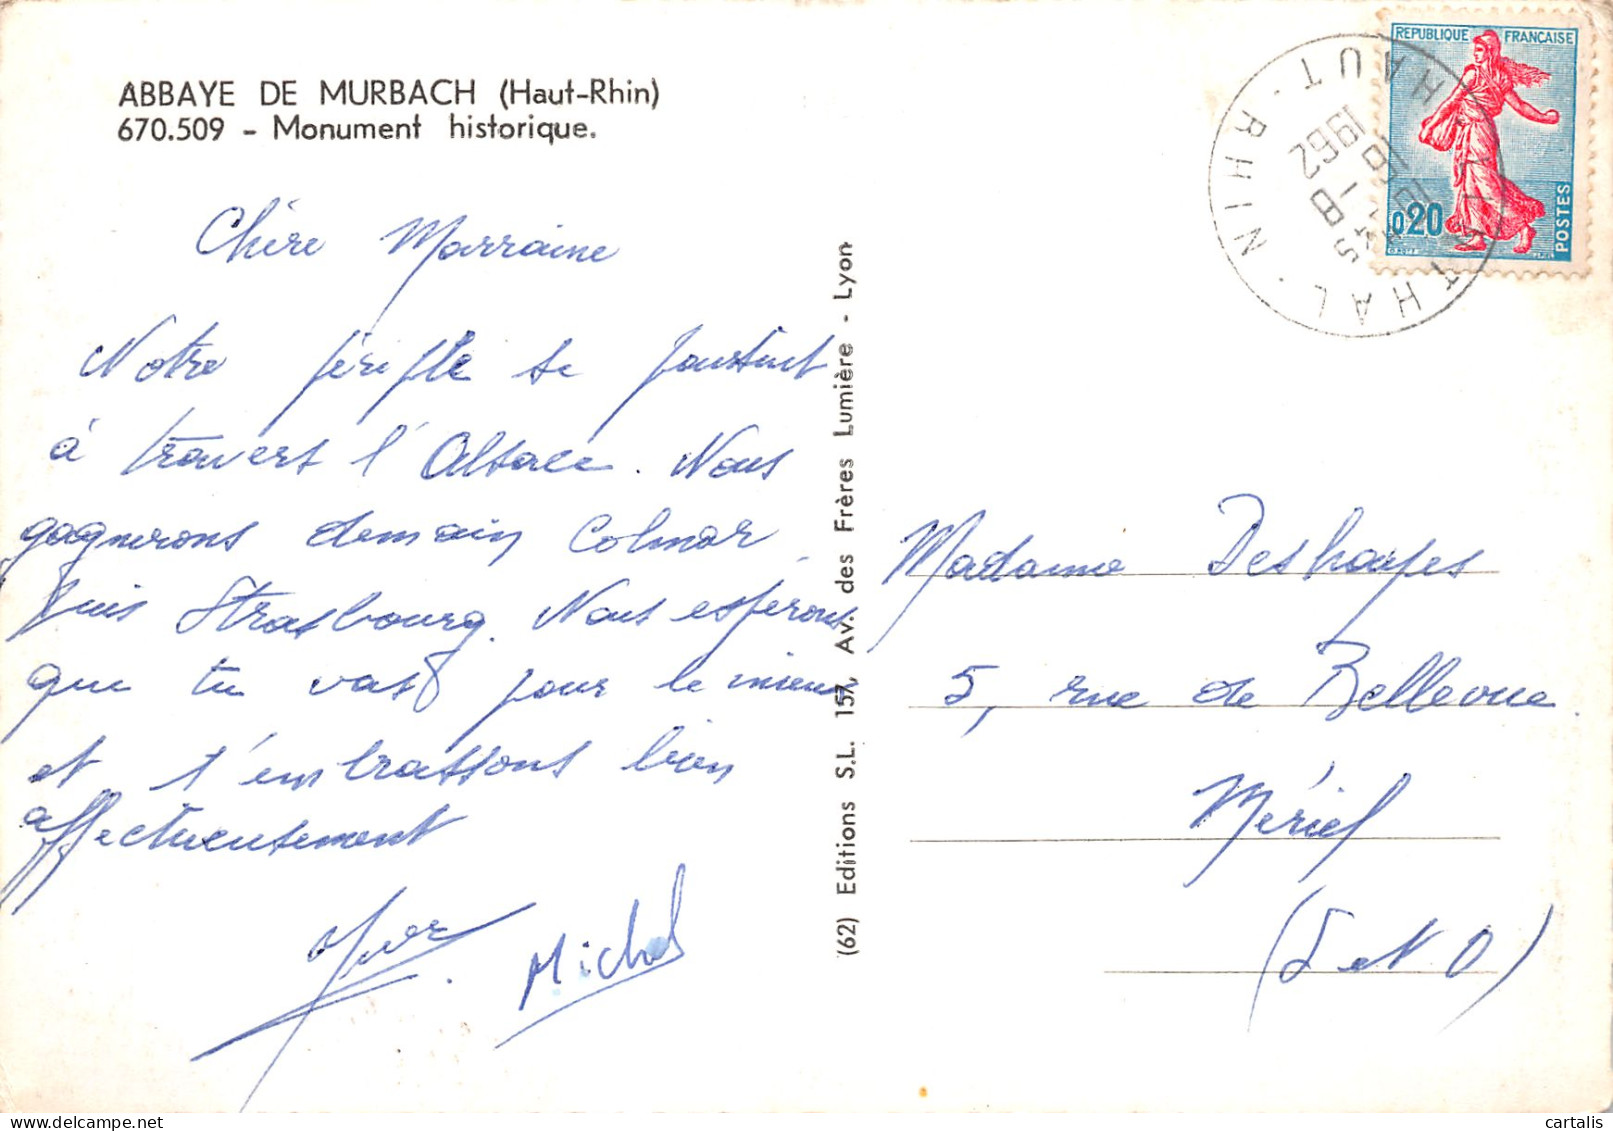 ABBAYE DE MURBACH (Haut-Rhin)
670.509 - Monument historique.
Chère Marraine
Notre périple se poursuit
à travers l'Alsace. Nous
gagnerons demain Colmar
puis Strasbourg. Nous espérons
que tu vas pour le mieux
et t'embrassons bien
affectueusement
Michel
(62) Editions S.L. 157, Av. des Frères Lumière - Lyon
REPUBLIQUE FRANÇAISE
0,20
POSTES
HAUT-RHIN
1962
Madame Deshayes
5, rue de Bellevue
Mériel
(S et O)
cartalis